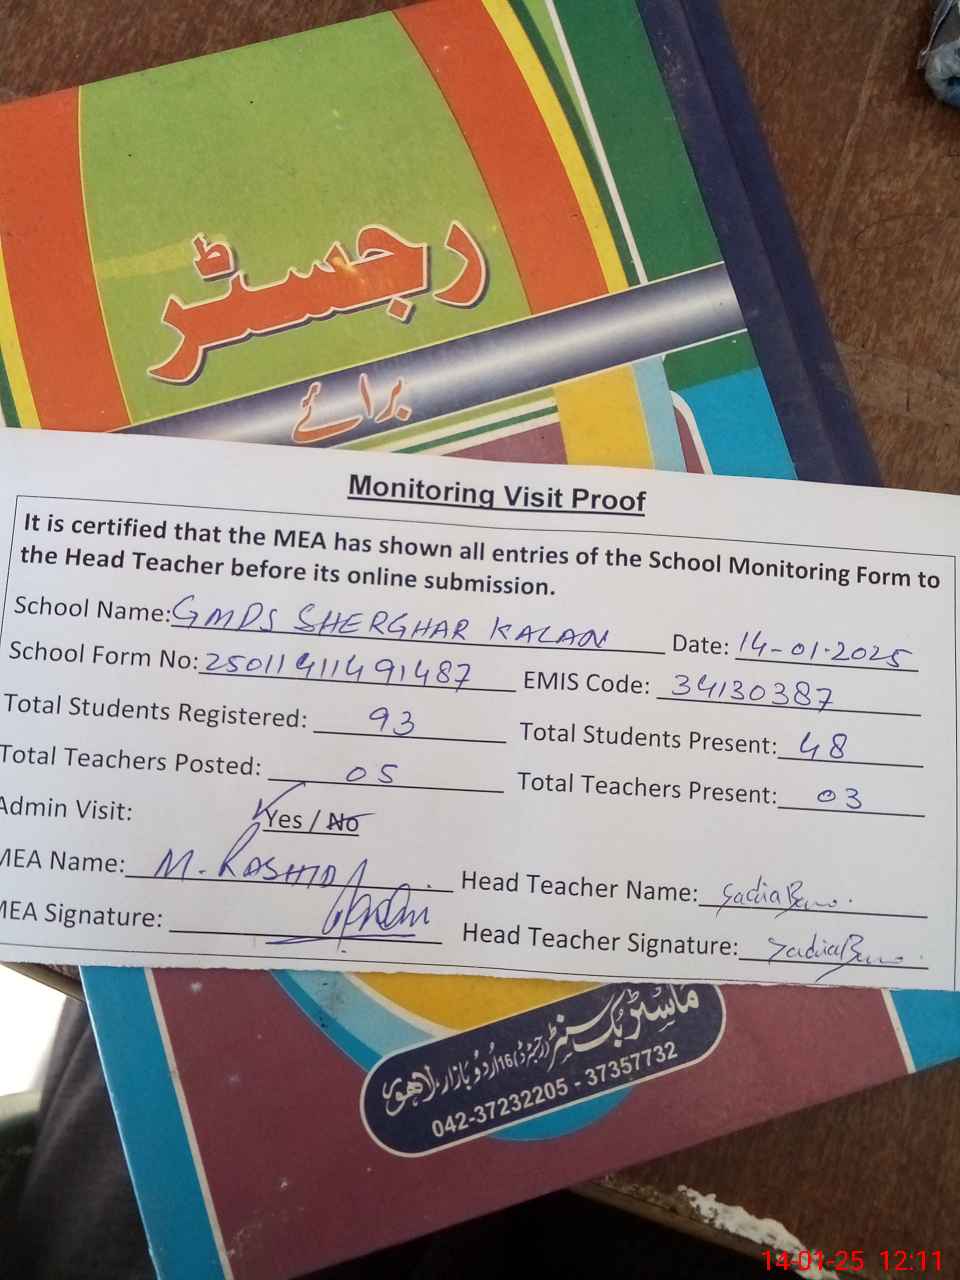 رجسٹر
برائے
Monitoring Visit Proof
It is certified that the MEA has shown all entries of the School Monitoring Form to
the Head Teacher before its online submission.
School Name: GMDS SHERGHAR KALAN Date: 14-01-2025
School Form No: 25011411491487 EMIS Code: 34130387
Total Students Registered: 93 Total Students Present: 48
Total Teachers Posted: 05 Total Teachers Present: 03
Admin Visit: Yes / No
MEA Name: M. RASHID Head Teacher Name: Sadia Bano.
MEA Signature: Head Teacher Signature: Sadia Bano.
ماسٹر بک سنٹر (رجسٹرڈ) 16 اُردو بازار۔ لاہور
042-37232205 - 37357732
14-01-25 12:11